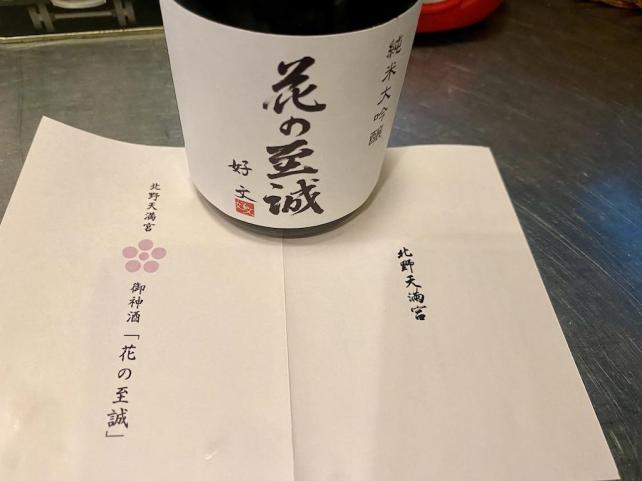 純米大吟醸
花の至誠
好文
北野天満宮
北野天満宮
御神酒「花の至誠」